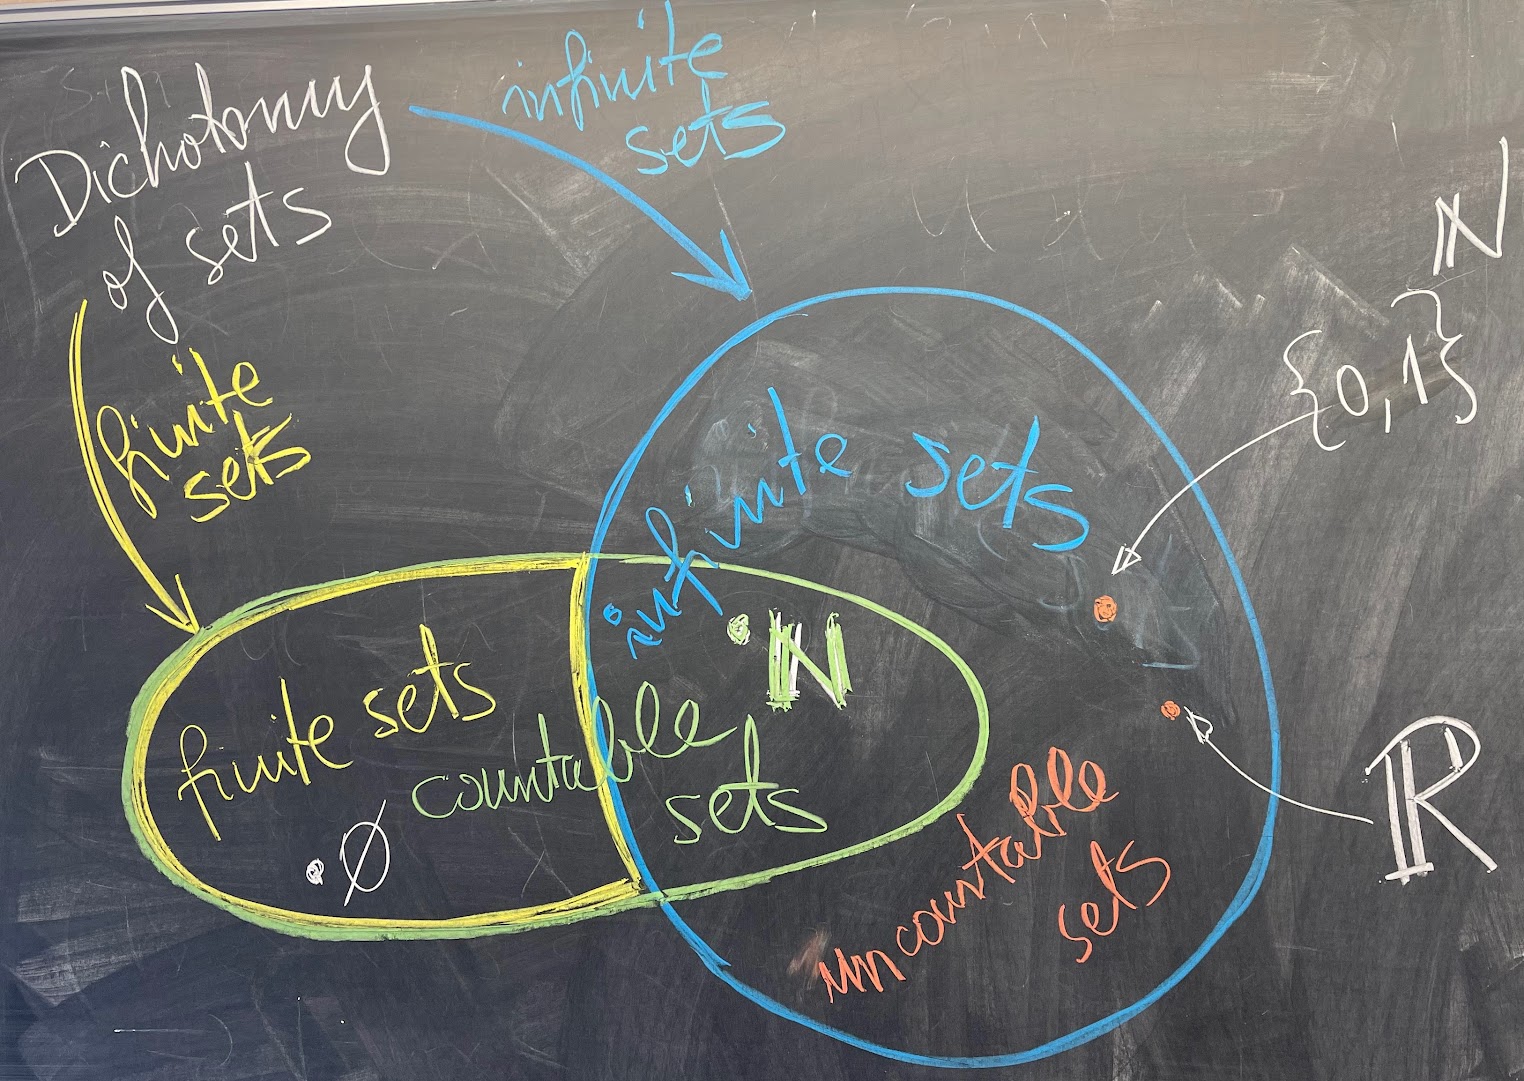 Dichotomy
of sets
infinite
sets
finite
sets
infinite sets
{0,1}ᴺ
ℕ
finite sets
countable
sets
∅
uncountable
sets
ℝ